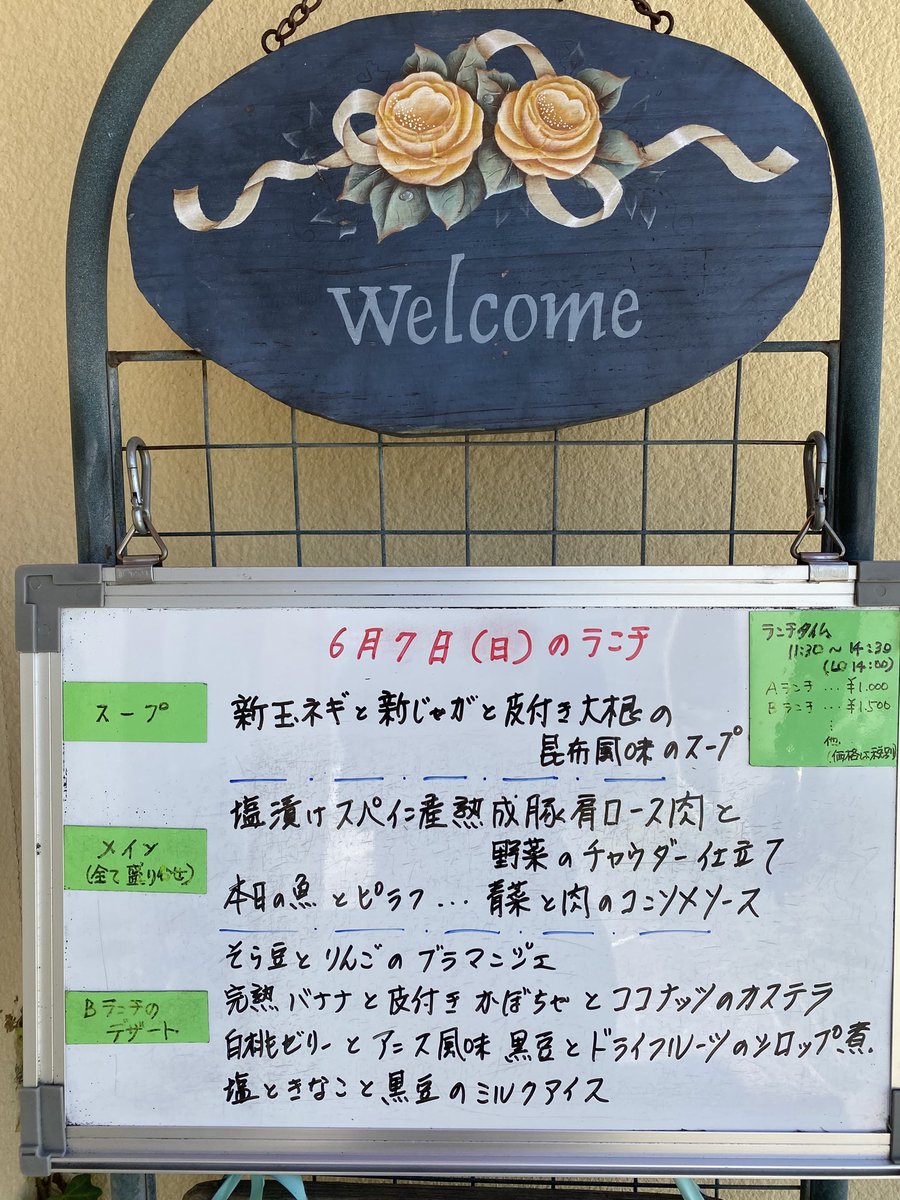 Welcome
6月7日(日)のランチ
ランチタイム
11:30～14:30
(LO 14:00)
Aランチ…¥1.000
Bランチ…¥1.500
他
(価格は税別)
スープ
新玉ネギと新じゃがと皮付き大根の
昆布風味のスープ
メイン
(全て盛り合せ)
塩漬けスペイン産熟成豚肩ロース肉と
野菜のチャウダー仕立て
本日の魚とピラフ…青菜と肉のコンソメソース
Bランチの
デザート
そら豆とりんごのブラマンジェ
完熟バナナと皮付きかぼちゃとココナッツのカステラ
白桃ゼリーとアニス風味黒豆とドライフルーツのシロップ煮
塩ときなこと黒豆のミルクアイス